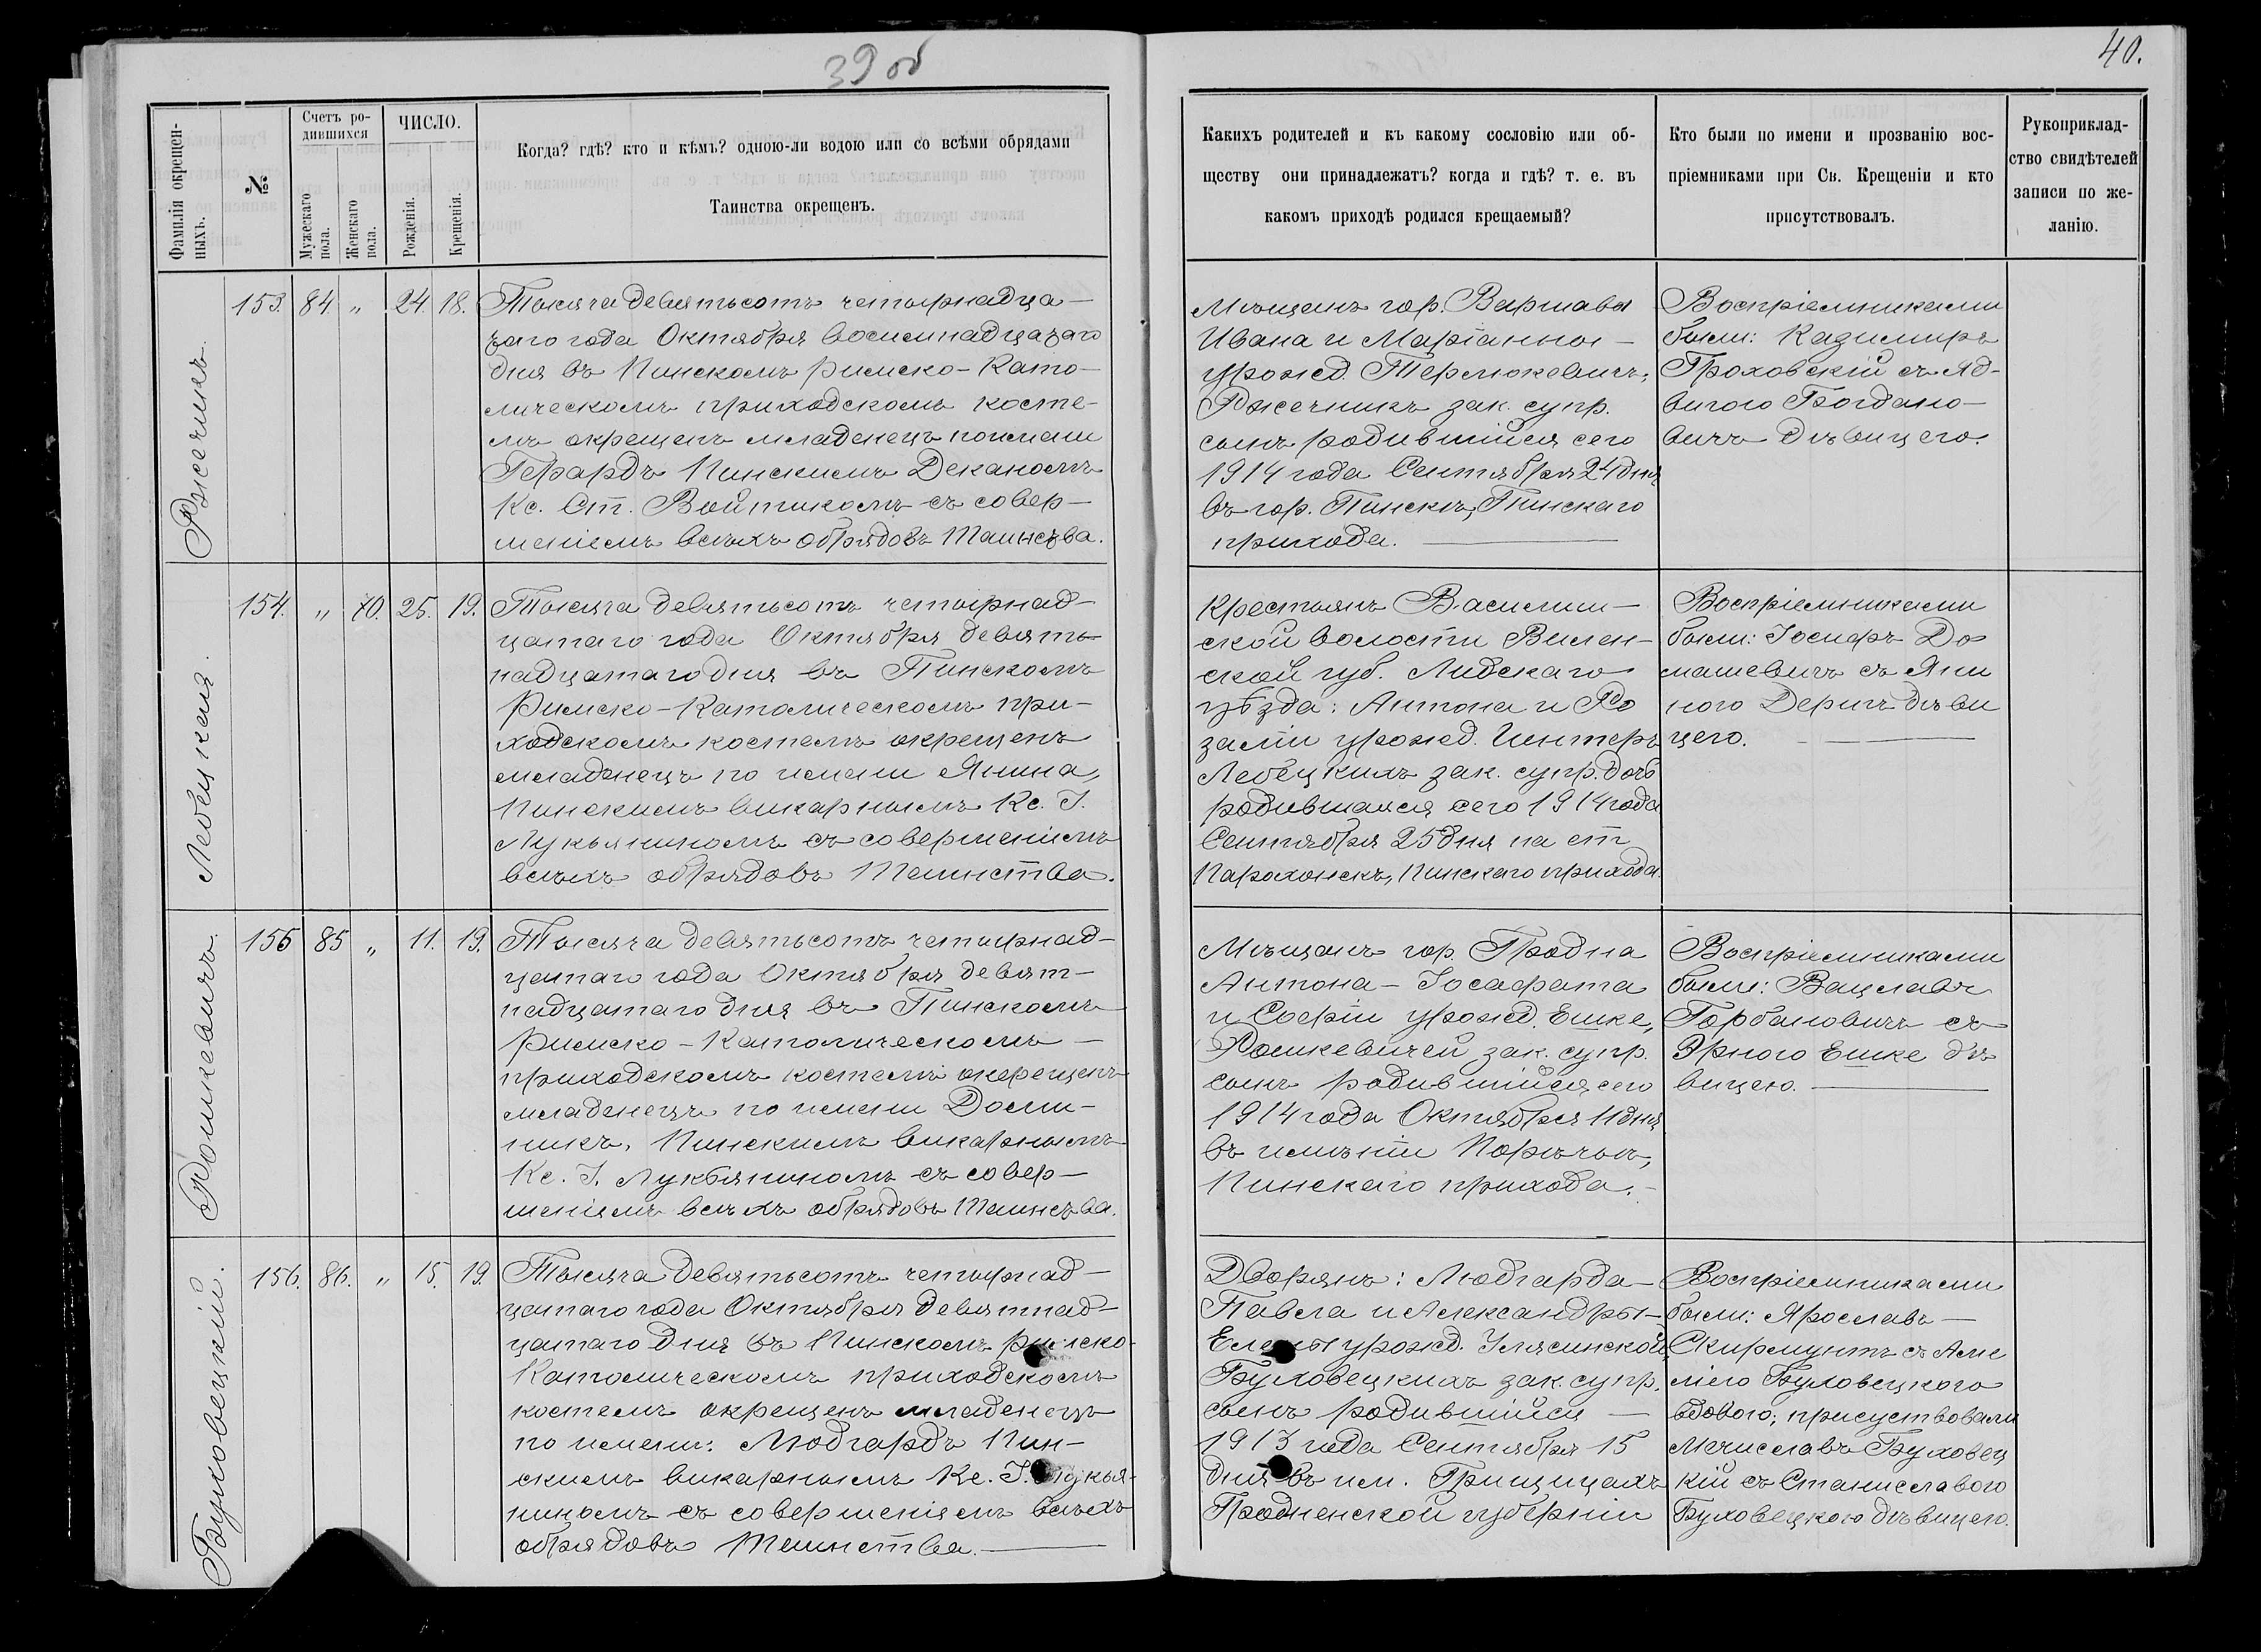 39 об
40.
Фамилія окрещен-
ныхъ.
№
Счетъ ро-
дившихся
Мужескаго
пола.
Женскаго
пола.
ЧИСЛО.
Рожденія.
Крещенія.
Когда? гдѣ? кто и кѣмъ? одною-ли водою или со всѣми обрядами
Таинства окрещенъ.
Какихъ родителей и къ какому сословію или об-
ществу они принадлежатъ? когда и гдѣ? т. е. въ
какомъ приходѣ родился крещаемый?
Кто были по имени и прозванію вос-
пріемниками при Св. Крещеніи и кто
присутствовалъ.
Рукоприклад-
ство свидѣтелей
записи по же-
ланію.
Ржечникъ.
153. 84 „ 24. 18.
Тысяча девятьсотъ четырнадца-
таго года Октября восемнадцатаго
дня въ Пинскомъ римско-Като-
лическомъ приходскомъ косте-
лѣ окрещенъ младенецъ по имени
Герардъ Пинскимъ Деканомъ
Кс. Ст. Войтикомъ съ совер-
шеніемъ всѣхъ обрядовъ Таинства.
Мѣщанъ гор. Варшавы
Ивана и Маріанны -
урожд. Термюкевичъ,
Ржечникъ зак. супр.
сынъ родившійся сего
1914 года Сентября 24 дня
въ гор. Пинскѣ, Пинскаго
прихода.
Воспріемниками
были: Казимиръ
Гроховскій съ Яд-
вигою Богдано-
вичъ дѣвицею.
Лебецкая.
154. „ 70. 25. 19.
Тысяча девятьсотъ четырнад-
цатаго года Октября девять-
надцатаго дня въ Пинскомъ
Римско-Католическомъ при-
ходскомъ костелѣ окрещенъ
младенецъ по имени Янина,
Пинскимъ викарнымъ Кс. І.
Лукьяниномъ съ совершеніемъ
всѣхъ обрядовъ Таинства.
Крестьянъ Василиш-
ской волости Вилен-
ской губ. Лидскаго
уѣзда: Антона и Ро
заліи урожд. Гинтеръ
Лебецкихъ зак. супр. дочь
родившаяся сего 1914 года
Сентября 25 дня на ст
Парохонскъ, Пинскаго прихода.
Воспріемниками
были: Іосифъ До
машевичъ съ Яни
ною Дерингъ дѣви
цею.
Ромкевичъ.
155 85 „ 11. 19.
Тысяча девятьсотъ четырнад-
цатаго года Октября девят-
надцатаго дня въ Пинскомъ
Римско-Католическомъ -
приходскомъ костелѣ окрещенъ
младенецъ по имени Доми-
никъ, Пинскимъ викарнымъ
Кс. І. Лукьяниномъ съ совер-
шеніемъ всѣхъ обрядовъ Таинства.
Мѣщанъ гор. Гродна
Антона-Іосафата
и Софіи урожд. Ешке,
Ромкевичей зак. супр.
сынъ родившійся сего
1914 года Октября 11 дня
въ имѣніи Порѣчьѣ,
Пинскаго прихода. -
Воспріемниками
были: Вацлавъ
Горбановичъ съ
Эрною Ешке дѣ
вицею.
Буховецкій.
156. 86. „ 15. 19.
Тысяча девятьсотъ четырнад-
цатаго года Октября девятнад-
цатаго дня въ Пинскомъ римско-
Католическомъ приходскомъ
костелѣ окрещенъ младенецъ
по имени: Людгардъ Пин-
скимъ викарнымъ Кс. І. Лукья-
ниномъ съ совершеніемъ всѣхъ
обрядовъ Таинства.
Дворянъ: Людгарда-
Павла и Александры-
Елены урожд.
Буховецкихъ зак. супр.
сынъ родившійся -
1913 года Сентября 15
дня въ им. Грицицахъ
Гродненской губерніи
Воспріемниками
были: Ярославъ -
Скирмунтъ съ Аме
ліею Буховецкою
вдовою; присуствовали
Мечиславъ Буховец
кій съ Станиславою
Буховецкою дѣвицею.